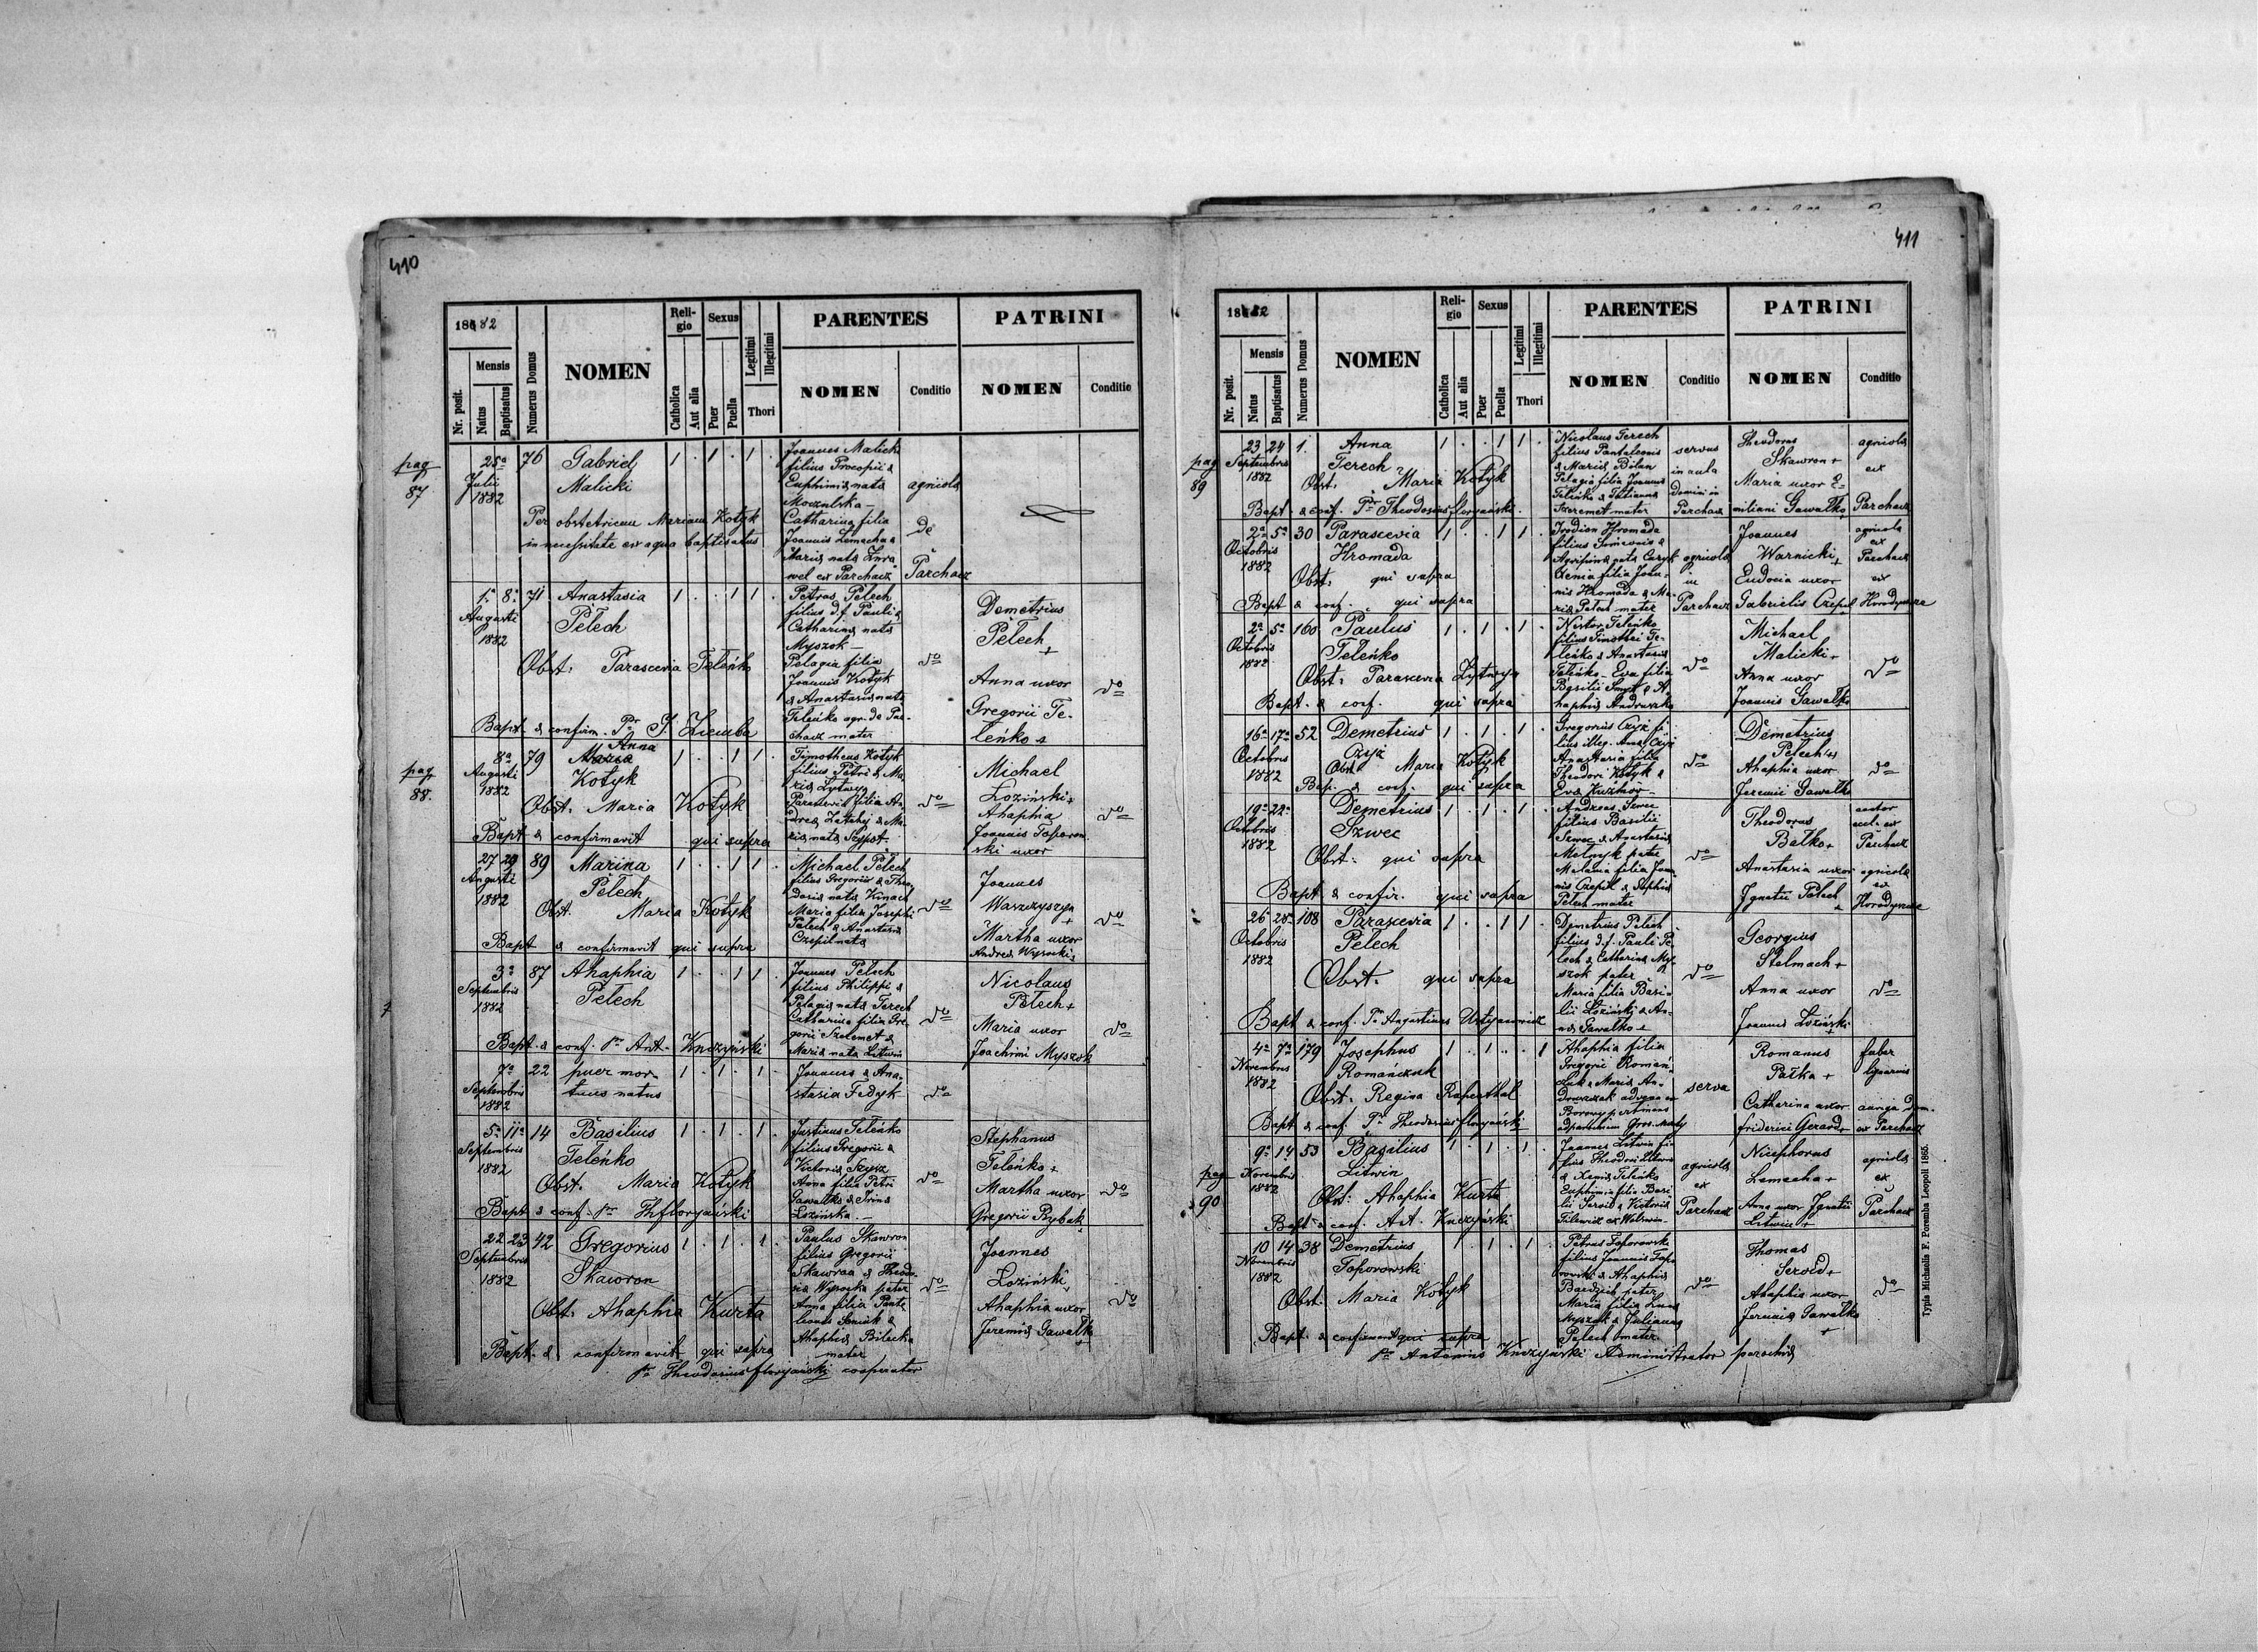 410
1882
Nr. posit.
Mensis
Natus
Baptisatus
Numerus Domus
NOMEN
Religio
Catholica
Aut alia
Sexus
Puer
Puella
Legitimi
Illegitimi
Thori
PARENTES
NOMEN
Conditio
PATRINI
NOMEN
Conditio
pag
87
25a
Julii
1882
76
Gabriel
Malicki
Per obstetricem Mariam Kotyk
in necessitate ex aqua baptisatus
Joannes Malicki
filius Procopii &
Euphimia nata
Catharina filia
Joannis Lemecha &
wel ex Parchacz
agricola
de
Parchacz
1a 8a 71
Augusti
1882
Anastasia
Pełech
Obst: Parascevia Teleńko
Bapt. & confirm. Pr J. Ziemba
Petrus Pełech
filius d.f. Pauli &
Catharina nata
Myszok
Pelagia filia
Joannis Kotyk
& Anastasia nata
Teleńko agr. de Par-
chacz mater
do
Demetrius
Pełech +
Anna uxor
Gregorii Te-
leńko +
do
pag
88.
8a 79
Augusti
1882
Anna
Maria
Kotyk
Obst. Maria Kotyk
Bapt & confirmavit qui supra
Tymotheus Kotyk
filius Petri & Ma-
ria Lytwyn
Parascevia filia An-
do
Michael
Łoziński +
Ahaphia
Joannis Toporow-
ski uxor
do
27 29 89
Augusti
1882
Marina
Pełech
Obst. Maria Kotyk
Bapt & confirmavit qui supra
Michael Pełech
filius Gregorii & Theo-
dosia nata Kinach
Maria filia Josephi
Pełech & Anastasia
Czepil nata
do
Joannes
Waszczyszyn
+
Martha uxor
Andrea Wysocki +
do
3a 87
Septembris
1882
Ahaphia
Pełech
Bapt. & conf. Pr Ant. Knczyński
Joannes Pełech
filius Philippi &
Pelagia nata Terech
Catharina filia Gre-
gorii Szeremet &
Maria nata Litwin
do
Nicolaus
Pełech +
Maria uxor
Joachimi Myszok
do
7a 22
Septembris
1882
puer mor-
tuus natus
Joannes & Ana-
stasia Fedyk
do
5a 11a 14
Septembris
1882
Basilius
Teleńko
Obst. Maria Kotyk
Bapt & conf. Pr Th floryański
Justinus Teleńko
filius Gregorii &
Victoria
Anna filia Petri
Gawałko & Irina
Łozińska
do
Stephanus
Teleńko +
Martha uxor
Gregorii Rybak +
do
22 23 42
Septembris
1882
Gregorius
Skawron
Obst: Ahaphia Kurta
Bapt. & confirmavit qui supra
Paulus Skawron
filius Gregorii
Skawron & Theodo-
sia Wysocka pater
Anna filia Pante-
leonis &
Ahaphia Bilecka
mater
do
Joannes
Łoziński
Ahaphia uxor
Jeremia Gawałko
do
Pr Theodosius floryański cooperator
411
1882
Nr. posit.
Mensis
Natus
Baptisatus
Numerus Domus
NOMEN
Religio
Catholica
Aut alia
Sexus
Puer
Puella
Legitimi
Illegitimi
Thori
PARENTES
NOMEN
Conditio
PATRINI
NOMEN
Conditio
pag
89
23 24 1.
Septembris
1882
Anna
Terech
Obst: Maria Kotyk
Bapt & conf. Pr Theodosius floryański
Nicolaus Terech
filius Pantaleonis
& Maria Bilan
Pelagia filia Joannis
Teleńko & Tatianna
Szeremet mater
servus
in aula
Domini in
Parchacz
Theodorus
Skawron +
Maria uxor E-
miliani Gawałko
agricola
ex
Parchacz
2a 5a 30
Octobris
1882
Parascevia
Hromada
Obst: qui supra
Bapt & conf. qui supra
Irodion Hromada
filius Simeonis &
Xenia filia Joan-
nis Hromada & Ma-
ria Pełech mater
agricola
in
Parchacz
Joannes
Warnicki +
Eudocia uxor
Gabrielis Czepil
agricola
ex
Parchacz
ex
Horodyszcze
2a 5a 160
Octobris
1882
Paulus
Teleńko
Obst: Parascevia Lytwyn
Bapt. & conf. qui supra
Nestor Teleńko
filius Timothei Te-
leńko & Anastasia
Teleńko - Eva filia
Basilii Smyt & A-
haphia Andruszko
do
Michael
Malicki +
Anna uxor
Joannis Gawałko
do
16a 17a 52
Octobris
1882
Demetrius
Czyż
Obst Maria Kotyk
Bap. & conf. qui supra
Gregorius Czyż fi-
lius illeg. Anna Czyż
Anastasia filia
Theodori Kotyk &
Eva Kuzmów
do
Demetrius
Pełech +
Ahaphia uxor
Jeremii Gawałko
do
19a 22a
Octobris
1882
Demetrius
Szwec
Obst: qui supra
Bapt & confir. qui supra
Andreas Szwec
filius Basilii
Szwec & Anastasia
Melnyk pater
Melania filia Joan-
nis Czepil & Sophia
Pełech mater
do
Theodorus
Bałko +
Anastasia uxor
Ignatii Pełech
+
cantor
eccl. ex
Parchacz
agricola
ex
Horodyszcze
26a 28a 108
Octobris
1882
Parascevia
Pełech
Obst. qui supra
Bapt & conf. Pr Augustinus
Demetrius Pełech
filius d.f. Pauli Pe-
łech & Catharina My-
szok pater
Maria filia Basi-
lii Łoziński & An-
na Gawałko +
do
Georgius
Stelmach +
Anna uxor
Joannis Łoziński
do
4a 7a 179
Novembris
1882
Josephus
Romańczuk
Obst. Regina Rapenthal
Bapt & conf. Pr Theodosius floryański
Ahaphia filia
Gregorii Romań-
czuk & Maria An-
serva
Romanus
Pałka +
Catharina uxor
friderici Gerard +
faber
lignarius
auriga dom.
ex Parchacz
pag
90
9a 14 53
Novembris
1882
Basilius
Litwin
Obst: Ahaphia Kurta
Bapt & conf. Ant. Knczyński
Joannes Litwin fi-
lius Theodori Litwin
& Xenia Teleńko
Euphimia filia Basi-
agricola
ex
Parchacz
Nicephorus
Lemecha +
Anna uxor Ignatii
Litwin +
agricola
ex
Parchacz
10 14 38
Novembris
1882
Demetrius
Toporowski
Obst. Maria Kotyk
Bapt. & confirmavit qui supra
Petrus Toporowski
filius Joannis Topo-
rowski & Ahaphia
pater
Maria filia Luca
Myszok & Juliana
Pełech mater
do
Thomas
Ahaphia uxor
Jeremia Gawałko
+
do
Pr Antonius Knczyński Administrator parochia
Typis Michaelis F. Poremba Leopoli 1865.